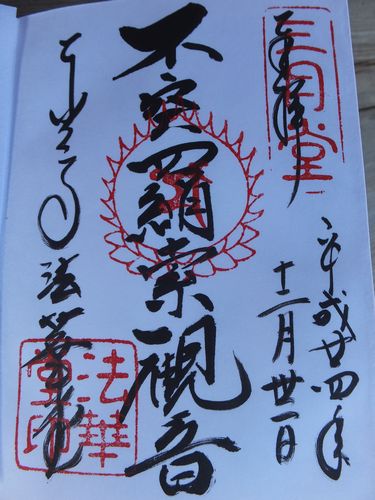 奉拝
三月堂
平成廿四年
十二月廿一日
不空羂索観音
東大寺
法華堂
法華堂印